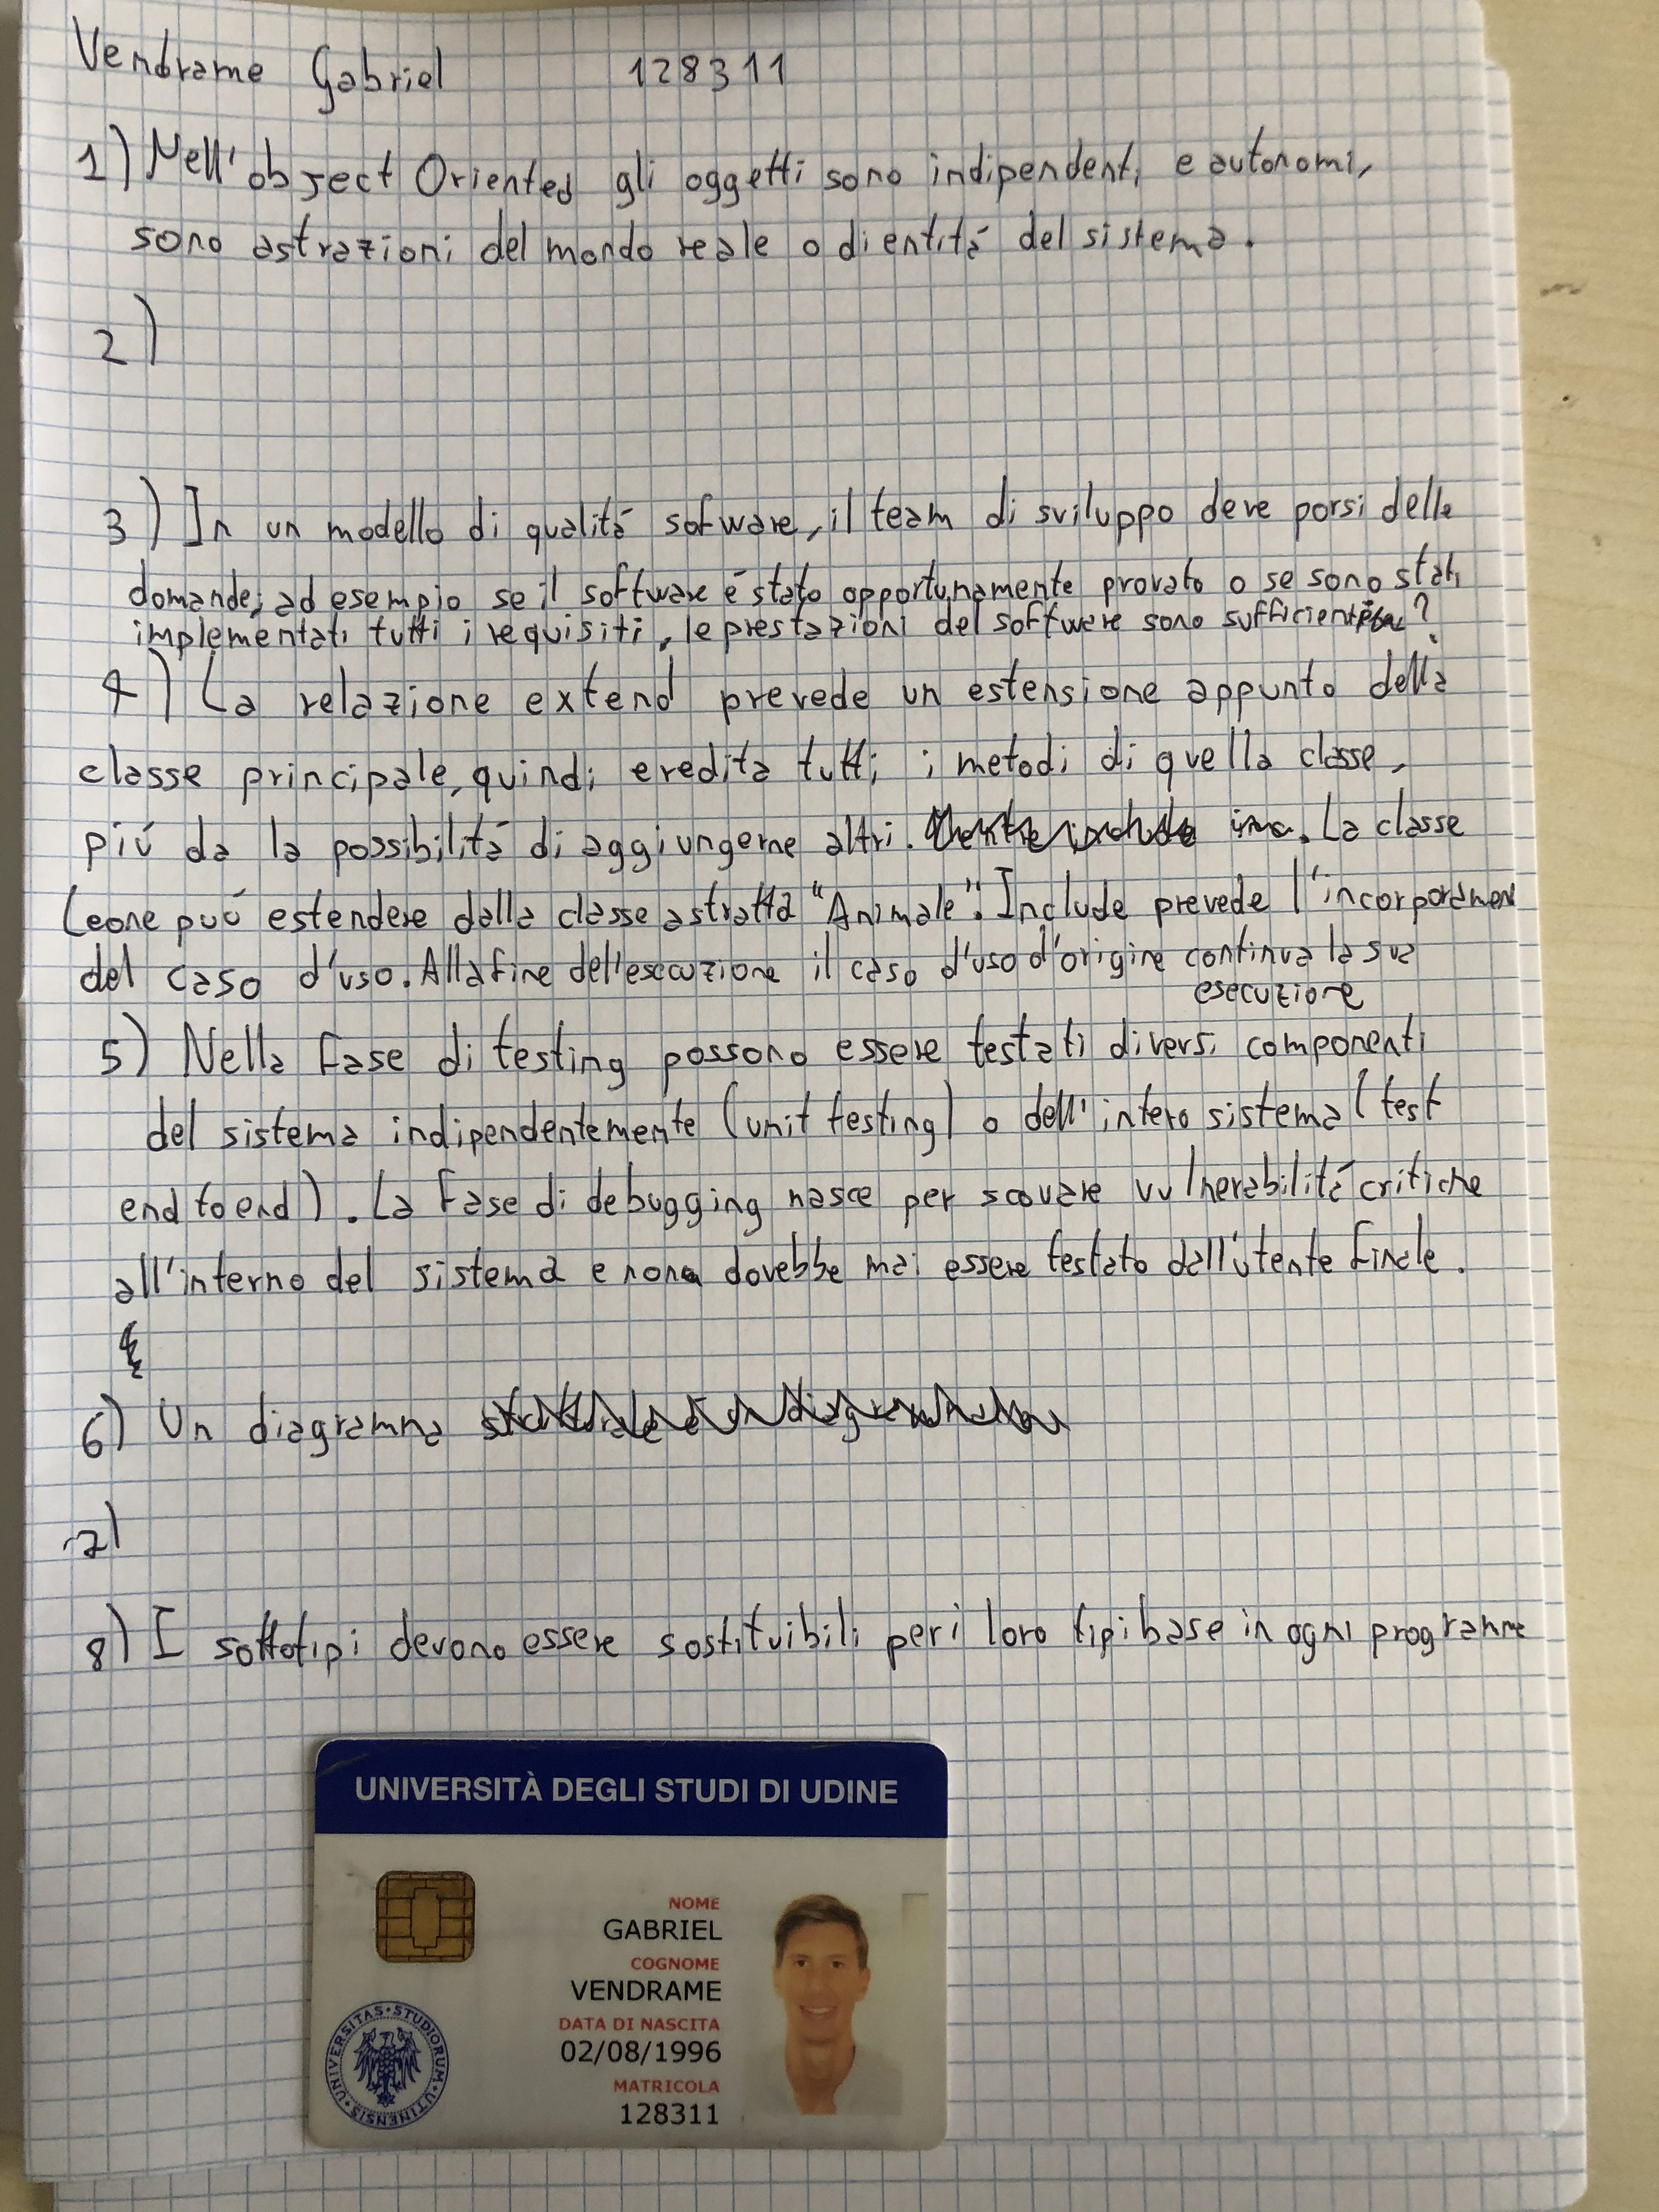 Vendrame Gabriel 128311
1) Nell'object Oriented gli oggetti sono indipendenti e autonomi,
sono astrazioni del mondo reale o di entitá del sistema.
2)
3) In un modello di qualitá sofware, il team di sviluppo deve porsi delle
domande, ad esempio se il software é stato opportunamente provato o se sono stati
implementati tutti i requisiti, le prestazioni del software sono sufficienti?
4) La relazione extend prevede un estensione appunto della
classe principale, quindi eredita tutti i metodi di quella classe,
piú da la possibilitá di aggiungerne altri. La classe
Leone puó estendere dalla classe astratta "Animale". Include prevede l'incorporamen
del caso d'uso. Alla fine dell'esecuzione il caso d'uso d'origine continua la sua
esecuzione
5) Nella fase di testing possono essere testati diversi componenti
del sistema indipendentemente (unit testing) o dell'intero sistema (test
end to end). La fase di debugging nasce per scovare vulnerabilitá critiche
all'interno del sistema e non dovebbe mai essere testato dall'utente finale.
6) Un diagramma
7)
8) I sottotipi devono essere sostituibili per i loro tipi base in ogni programma
UNIVERSITÀ DEGLI STUDI DI UDINE
NOME
GABRIEL
COGNOME
VENDRAME
DATA DI NASCITA
02/08/1996
MATRICOLA
128311
UNIVERSITAS · STUDIORUM · UTINENSIS